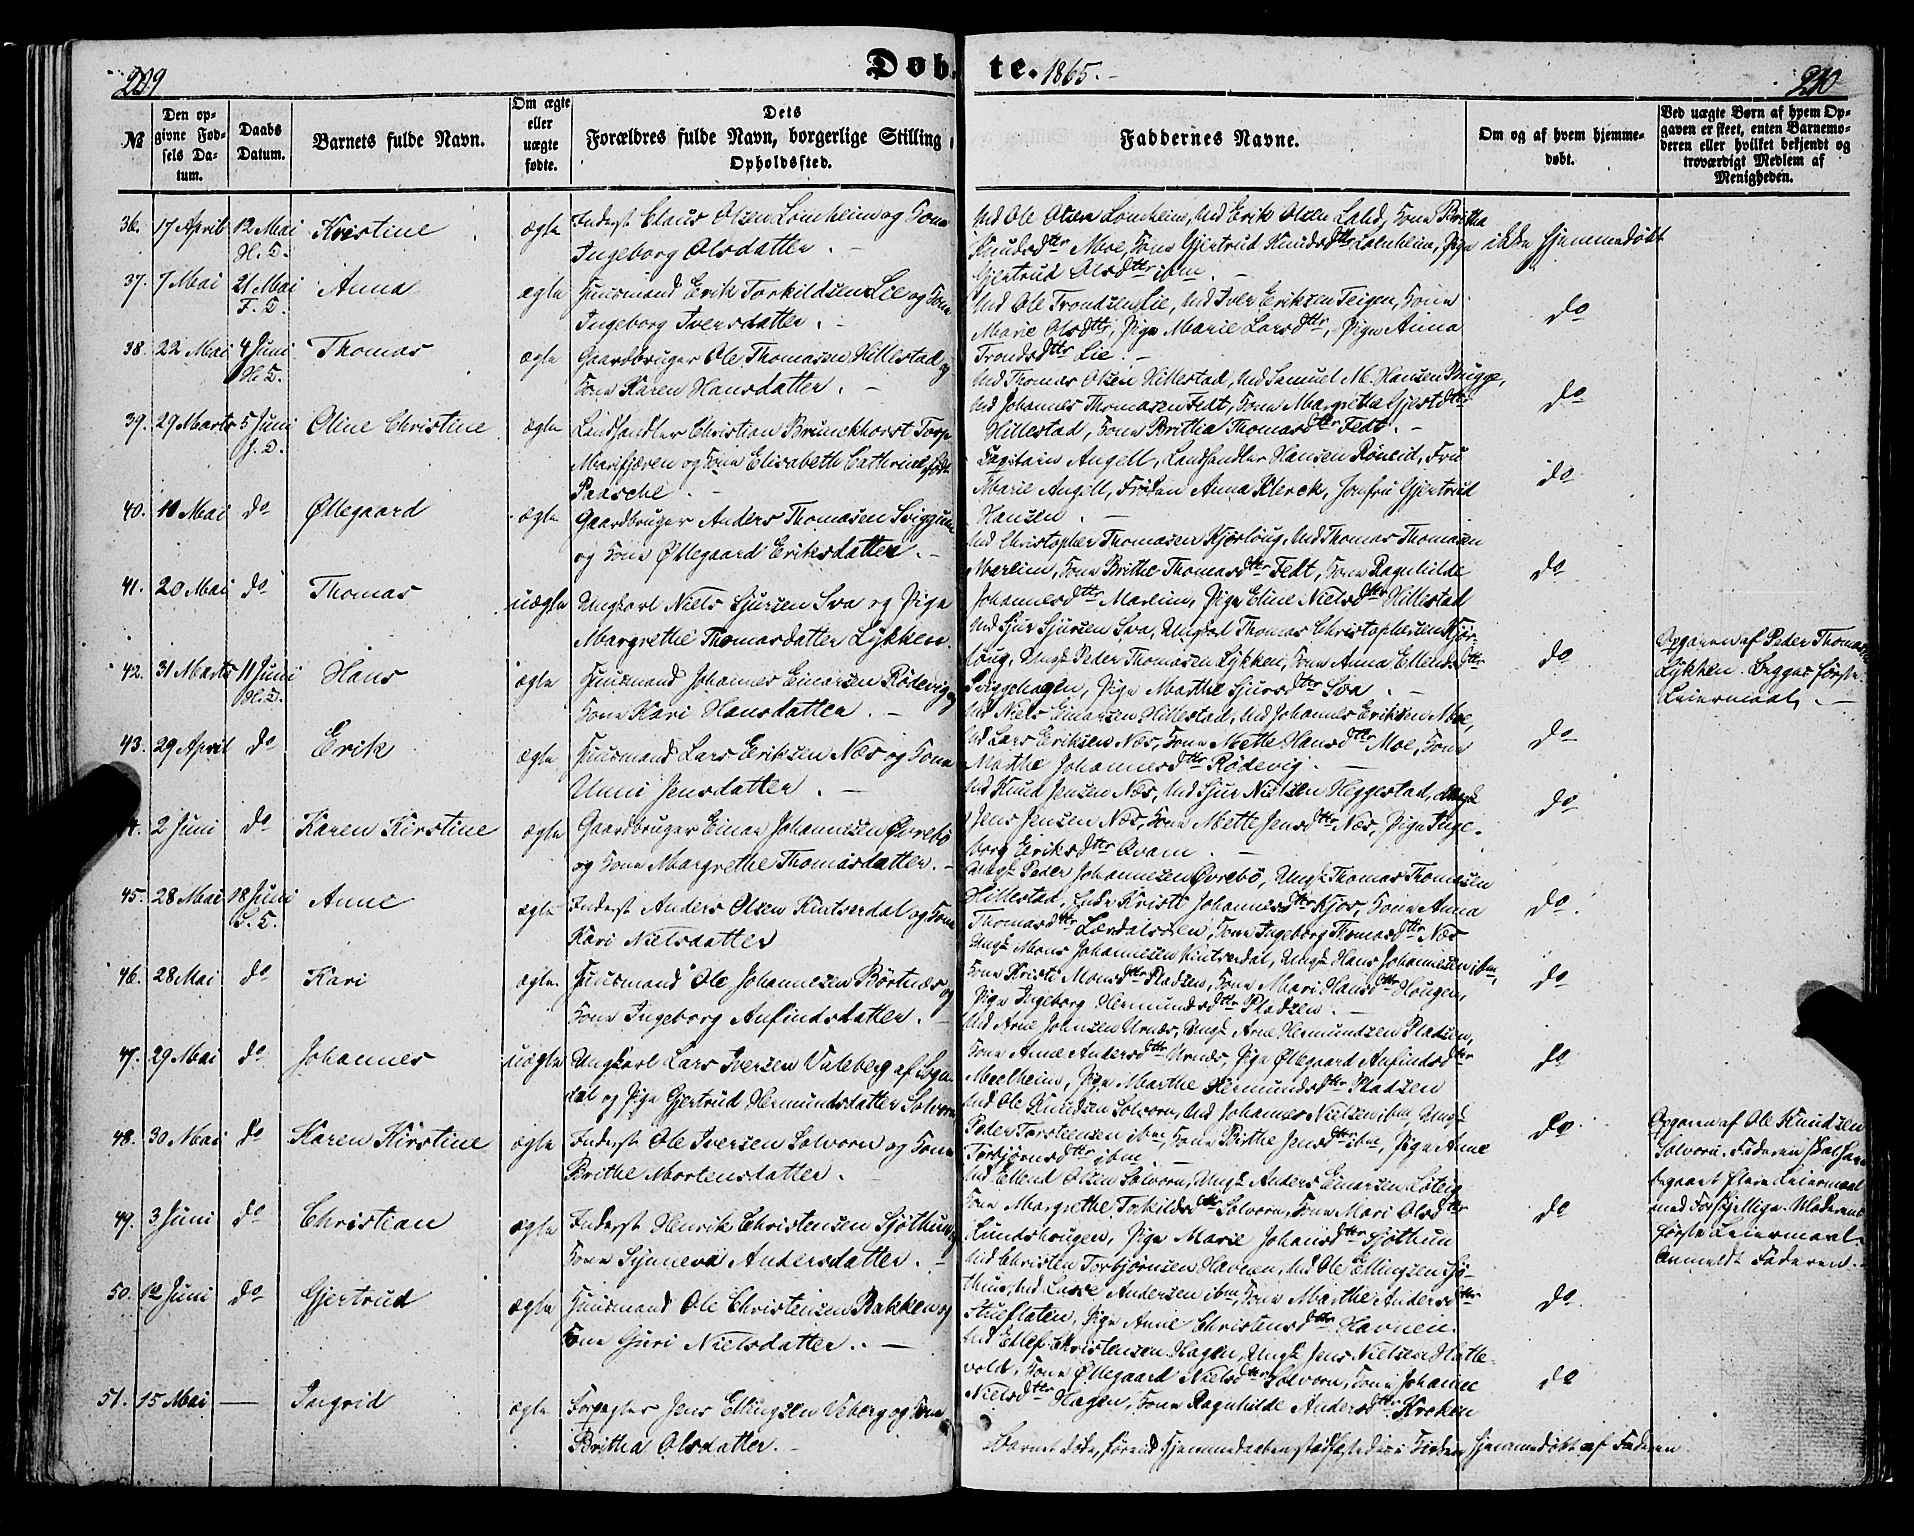 209
Døb
te. 1865.
210
№
Den op-
givne Fød-
sels Da-
tum.
Daabs
Datum.
Barnets fulde Navn.
Om ægte
eller
uægte
fødte.
Dets
Forældres fulde Navn, borgerlige Stilling
Opholdssted.
Faddernes Navne.
Om og af hvem hjemme-
døbt.
Ved uægte Børn af hvem Op-
gaven er skeet, enten Barnemo-
deren eller hvilket bekjendt og
troværdigt Medlem af
Menigheden.
36. 17 April 12 Mai Kristine ægte Inderst Claus Olsen Lomheim og Kone
Ingeborg Olsdatter.
Ole Olsen Lomheim, Erik Olsen Kone Britha
Knudsdttr Moe, Kone Gjertrud Knudsdttr Lomheim, Pige ikke hjemmedøbt
Gjertrud Olsdttr ibm.
37. 7 Mai 21 Mai Anna ægte Huusmand Erik Torkildsen Lie og Kone
F. T.
Ingeborg Iversdatter.
Ole Trondsen Lie, Iver Eriksen Teigen, Kone
Marie Olsdttr, Pige Marie Larsdttr, Pige Anna
Trondsdttr Lie.
do
38. 22 Mai 4 Juni Thomas ægte Gaardbruger Ole Thomasen Hillestad og
Kone Karen Hansdatter.
Thomas Olsen Hillestad, Samuel M. Hansen Brugge,
Johannes Thomasen Fedt, Kone Margrethe Gjestdttr
Hillestad, Kone Britha Thomasdttr Fedt.
do
39. 29 Marts 5 Juni Oline Christine ægte Landhandler Christian Brunckhorst Torp
Marifjæren og Kone Elisabeth Cathrine født
Paasche.
Capitain Angell, Landhandler Hansen Røneid, Fru
Marie Angell, Frøken Anna Klerck, Jomfru Gjertrud
Hansen.
do
40. 10 Mai do Øllegaard ægte Gaardbruger Anders Thomasen Sviggum
og Kone Øllegaard Eriksdatter.
Christopher Thomasen Kjørloug, Thomas Thomasen
Marlim, Kone Brithe Thomasdttr Fedt, Kone Ragnhilde
Johannesdttr Marlim, Pige Eline Nielsdttr Hillestad
do
41. 20 Mai do Thomas uægte Ungkarl Niels Sjursen Sva og Pige
Margrethe Thomasdatter Lykken.
Sjur Sjursen Sva, Ungkal Thomas Christophersen Kjør-
loug, Ungk Peder Thomasen Lykken, Kone Anna Ellendsdttr
Sviggehagen, Pige Marthe Sjursdttr Sva.
do
Opgaven af Peder Thomasen
Lykken. Begges første
Leiermaal.
42. 31 Marts 11 Juni Hans ægte Huusmand Johannes Einarsen Rødevig og
Kone Kari Hansdatter.
Niels Einarsen Hillestad, Johannes Eriksen Moe,
Lars Eriksen Næs, Kone Mette Hansdttr Moe, Kone
Marthe Johannesdttr Rødevig.
do
43. 29 April do Erik ægte Huusmand Lars Eriksen Næs og Kone
Unni Jensdatter.
Knud Jensen Næs, Sjur Nielsen Heggestad, Ungk
Jens Jensen Næs, Kone Mette Jensdttr Næs, Pige Inge-
borg Eriksdttr Qvam.
do
2 Juni do Karen Kirstine ægte Gaardbruger Einar Johannesen Øvrebø
og Kone Margrethe Thomasdatter.
Ungk Peder Johannesen Øvrebø, Ungk Thomas Thomasen
Hillestad, Enke Kristi Johannesdttr Kjos, Kone Anna
Thomasdttr Lærdalsøen, Kone Ingeborg Thomasdttr Næs
do
45. 28 Mai 18 Juni Anne ægte Inderst Anders Olsen Kintserdal og Kone
Kari Nielsdatter
Ungk Mons Johannesen Kintserdal, Ungk Hans Johannesen ibm,
Kone Kristi Monsdttr Pladsen, Kone Mari Hansdttr Hougen,
Pige Ingeborg Hermundsdttr Pladsen.
do
46. 28 Mai do Kari ægte Huusmand Ole Johannesen Børtnæs og
Kone Ingeborg Anfindsdatter.
Arne Johnsen Urnæs, Ungk Arne Hermundsen Pladsen,
Kone Anne Andersdttr Urnæs, Pige Øllegaard Anfindsdttr
Moelheim, Pige Marthe Hermundsdttr Pladsen
do
47. 29 Mai do Johannes uægte Ungkarl Lars Iversen Valeberg af Sogn-
dal og Pige Gjertrud Hermundsdatter Solvorn
Ole Knudsen Solvorn, Johannes Nielsen ibm, Ungk
Peder Torstensen ibm, Kone Brithe Jensdttr ibm, Pige Anne
Torbjørnsdttr ibm.
do
Opgaven af Ole Knudsen
Solvorn. Faderen skal have
begaaet flere Leiermaal
med forskjellige. Moderens
første Leiermaal.
Anmeldt Faderen.
48. 30 Mai do Karen Kirstine ægte Inderst Ole Iversen Solvorn og Kone
Brithe Mortensdatter.
Ellend Olsen Solvorn, Ungk Anders Einarsen Løteig
Kone Margrethe Torkildsdttr Solvorn, Kone Mari Olsdttr
Lundshougen, Pige Marie Johansdttr Sjøthun
do
49. 3 Juni do Christian ægte Inderst Henrik Christensen Sjøthun og
Kone Synneva Andersdatter.
Christen Torbjørnsen Havnen, Ole Ellingsen Sjø-
thun, Lasse Andersen ibm, Kone Marthe Andersdttr
Stueflaten, Pige Anne Christensdttr Havnen.
do
50. 12 Juni do Gjertrud ægte Huusmand Ole Christensen Bakken og
Kone Guri Nielsdatter.
Ellef Christensen Hagen, Ungk Jens Nielsen Hatle-
vold, Kone Øllegaard Nielsdttr Solvorn, Kone Johanne
Nielsdttr Hagen, Kone Ragnhilde Andersdttr Kroken
do
51. 15 Mai — Ingrid ægte Forpagter Jens Ellingsen Veberg og Kone
Britha Olsdatter.
Barnet døde, førend hjemmedaaben stadfæstedes i Kirken hjemmedøbt af Faderen